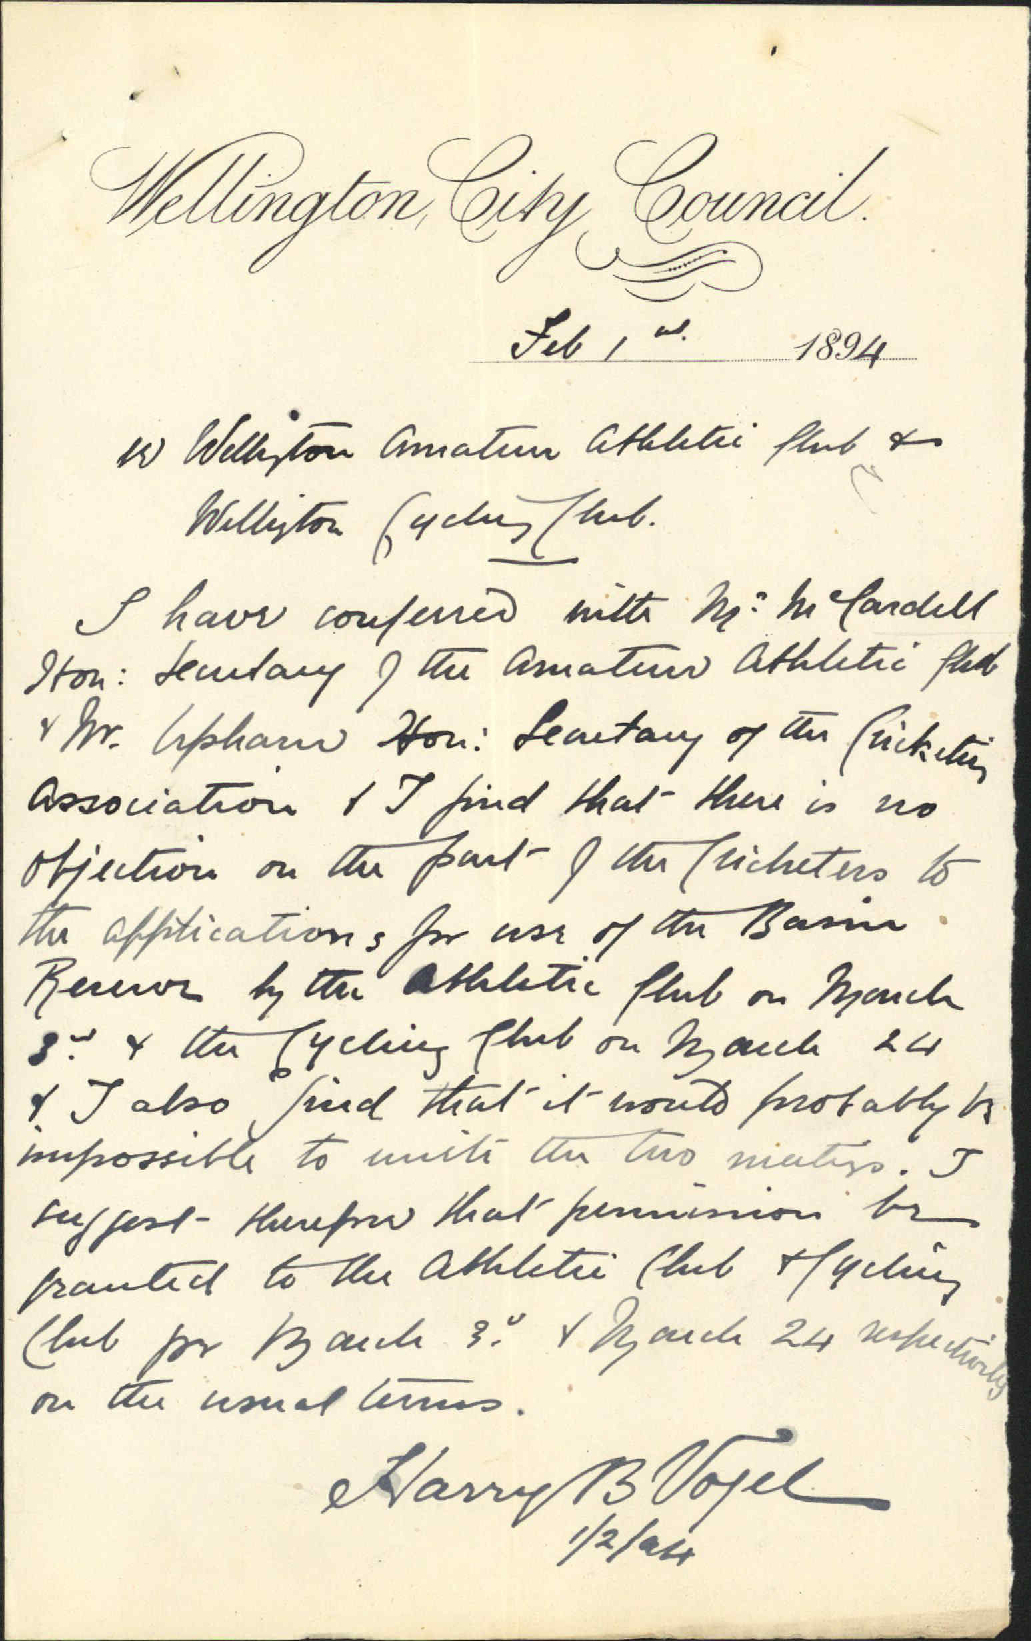 Wellington City Council.
Feb 1st. 1894
re Wellington Amateur Athletic Club &
Wellington Cycling Club.
I have conferred with Mr: McCardell
Hon: Secretary of the Amateur Athletic Club
& Mr. Upham Hon: Secretary of the Cricketing
Association & I find that there is no
objection on the part of the Cricketers to
the applications for use of the Basin
Reserve by the Athletic Club on March
3rd & the Cycling Club on March 24
& I also find that it would probably be
impossible to unite the two meetings. I
suggest therefore that permission be
granted to the Athletic Club & Cycling
Club for March 3d. & March 24 respectively
on the usual terms.
Harry B Vogel
1/2/94